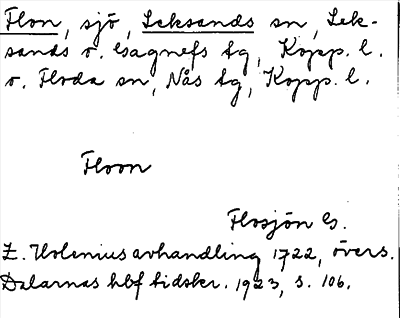 Flon, sjö, Leksands sn, Lek-
sands o. Gagnefs tg, Kopp. l.
o. Floda sn, Nås tg, Kopp. l.
Floon
Flosjön G.
Z. Holenius avhandling 1722, övers.
Dalarnas hbf tidskr. 1923, s. 106.